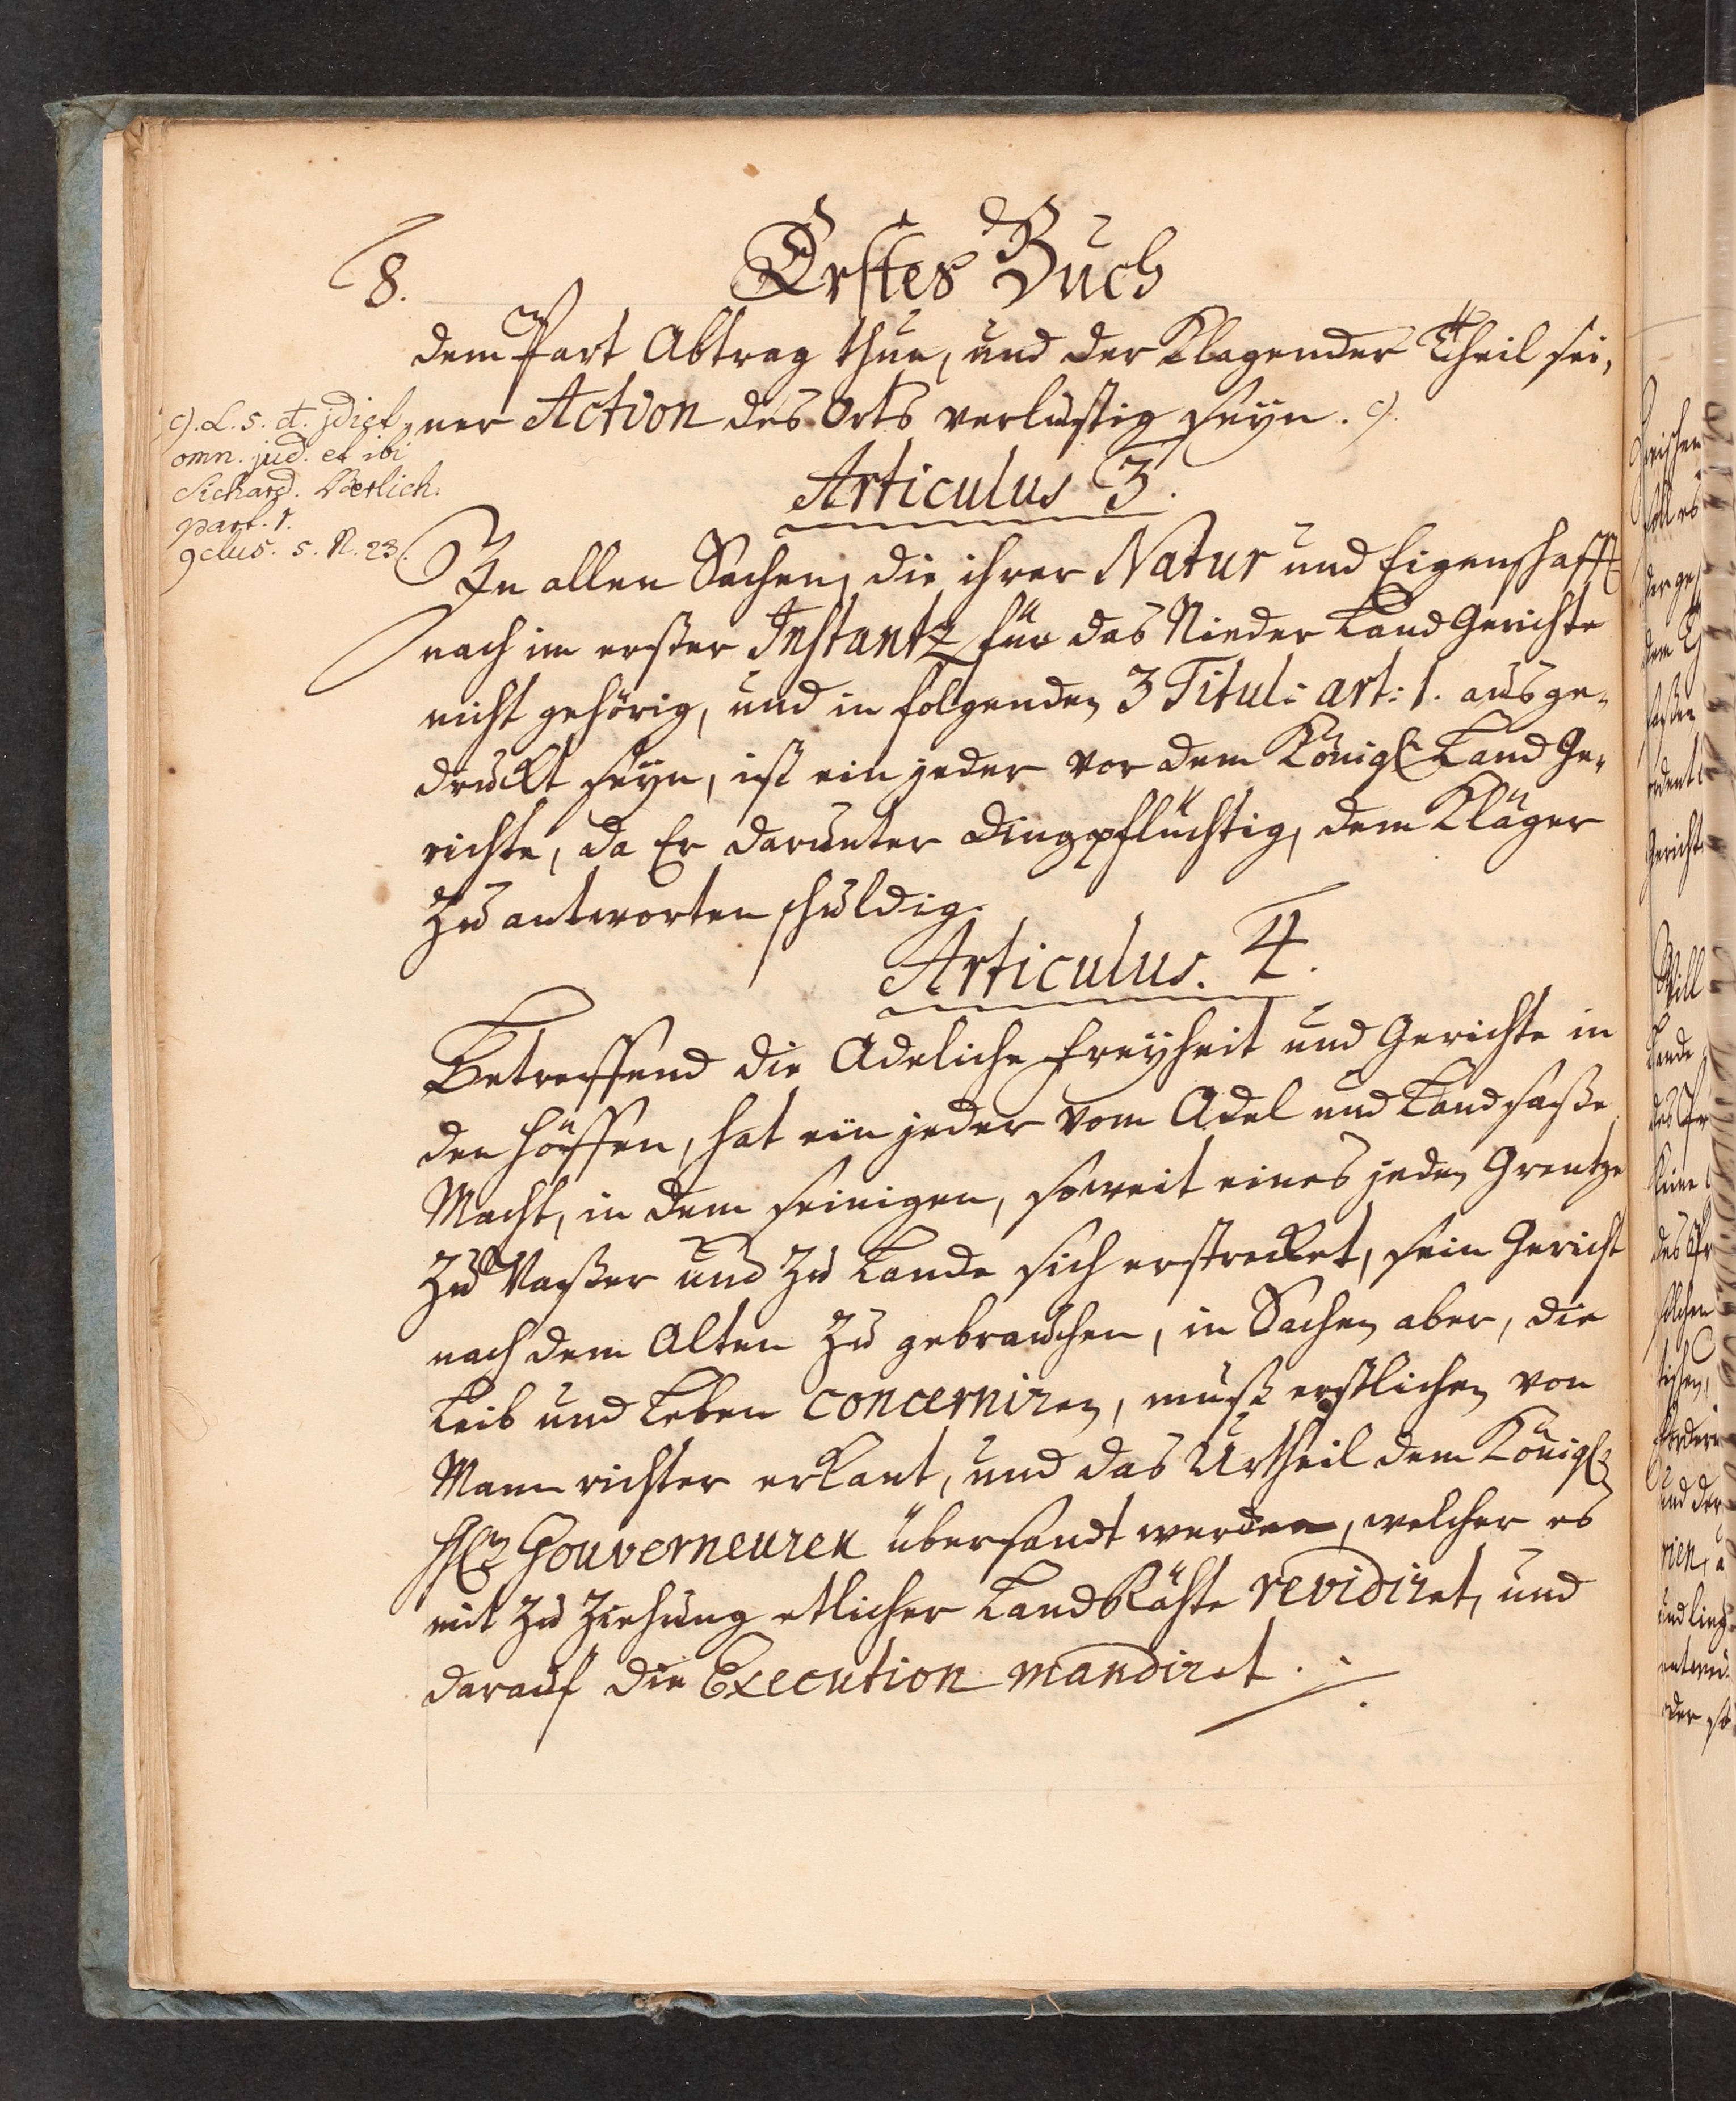 8.
Erstes Buch
dem Part Abtrag thun, und der Klagender Theil sei,
ner Action des Orts verlustig seyn. c).
c). L. 5. d. jdict.
omn. jud. et ibi
Sichard. Berlich.
part. 1.
9clus. 5. N. 23.
Articulus 3.
In allen Sachen, die ihrer Natur und Eigenschafft
nach im erster Instantz für das Nieder Land Gerichte
nicht gehörig, und in folgenden 3 Titul: art: 1. ausge-
druckt seyn, ist ein jeder vor dem Königl. Land Ge-
richte, da Er darunter dingpflichtig, dem Kläger
zu antworten schuldig.
Articulus. 4.
Betreffend die Adeliche Freyheit und Gerichte in
den Höffen, hat ein jeder vom Adel und Landsaße
Macht, in dem seinigen, soweit eines jeden Grentze
zu Waßer und zu Lande sich erstrecket, sein Gericht
nach dem Alten zu gebrauchen, in Sachen aber, die
Leib und Leben concerniren, muß erstlichen von
Mannrichter erkant, und das Urtheil dem Königl.
Gouverneuren übersandt werden, welcher es
mit zu Ziehung etlicher Land Rähte revidiret, und
darauf die Execution mandiret.